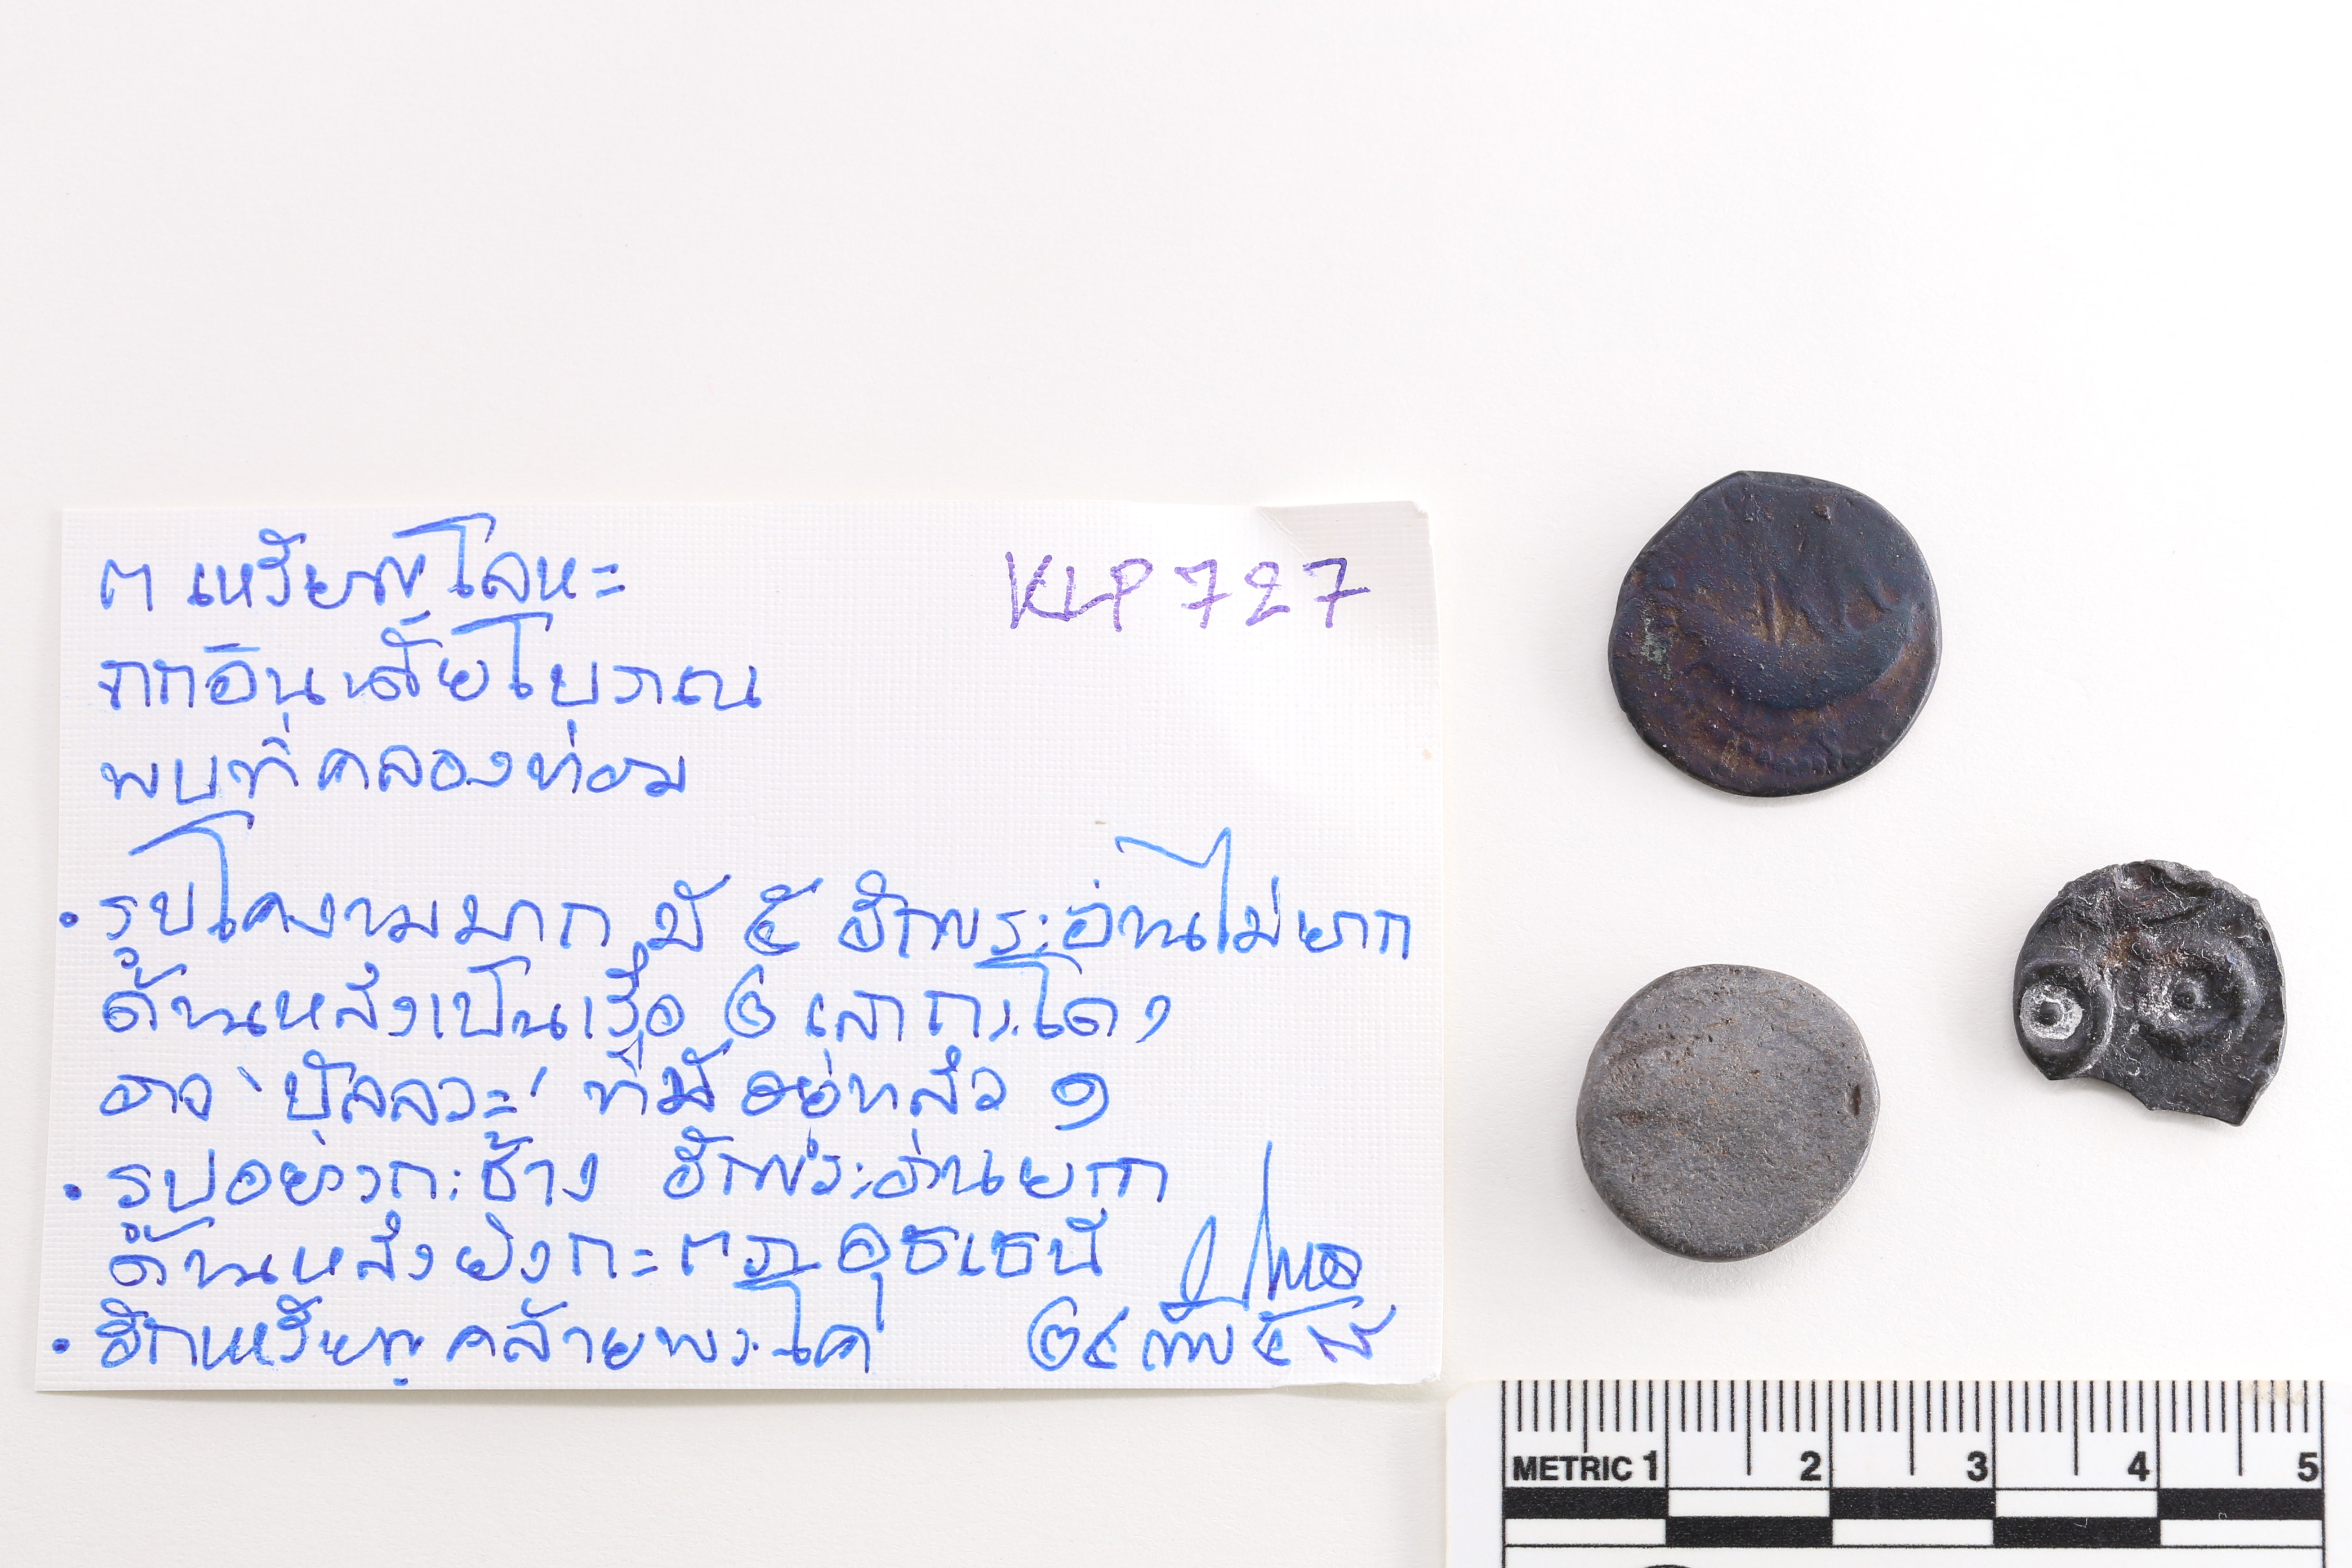 ๓ เหรียญโลหะ
จากอินเดียโบราณ
พบที่คลองท่อม
KLP 727
• รูปโคงามมาก มี ๕ อักขระอ่านไม่ยาก
ด้านหลังเป็นเรือ ๒ เสากระโดง
อาจ 'ปัลลวะ' ที่มีอยู่แล้ว ๑
• รูปอย่างกะช้าง อักขระอ่านยาก
ด้านหลังยังกะตรา อุชเชนี
• อีกเหรียญคล้ายพระโค
METRIC 1 2 3 4 5